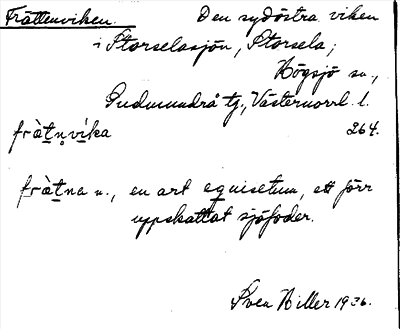 Frättenviken. Den sydöstra viken
i Storselasjön, Storsela;
Högsjö sn.,
Gudmundrå tg., Västernorrl. l.
frä̀tn̥víka 264.
frä̀tna n., en art equisetum, ett förr
uppskattat sjöfoder.
Sven Hiller 1936.